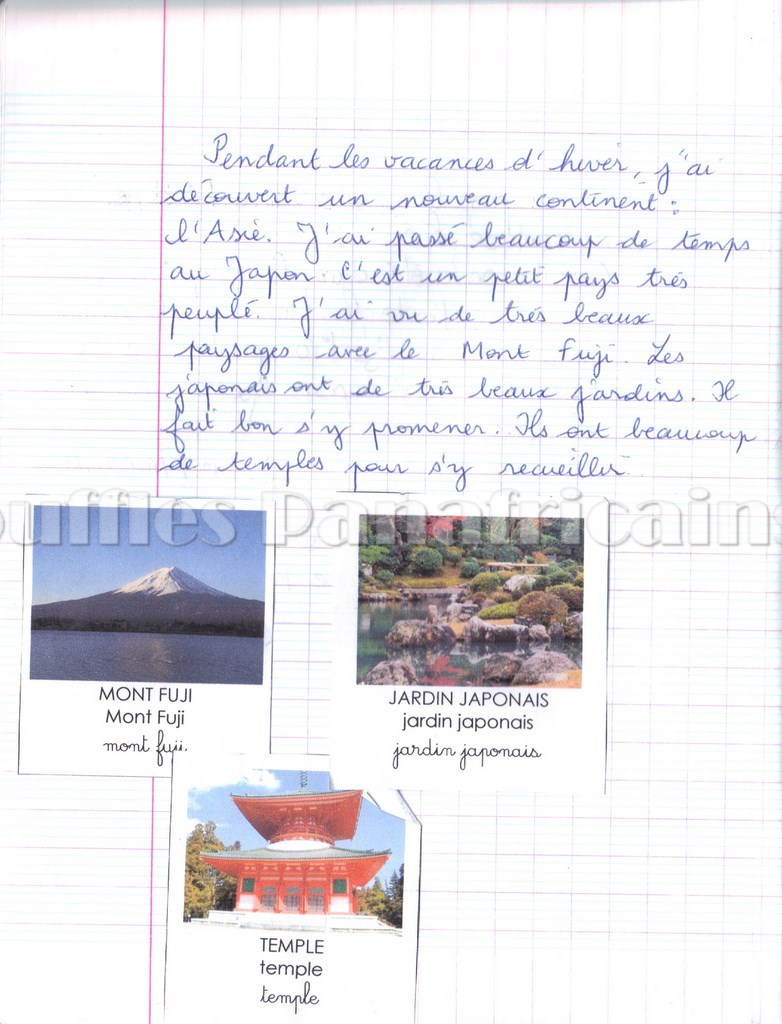 Pendant les vacances d'hiver, j'ai
découvert un nouveau continent :
l'Asie. J'ai passé beaucoup de temps
au Japon. C'est un petit pays très
peuplé. J'ai vu de très beaux
paysages avec le Mont Fuji. Les
japonais ont de très beaux jardins. Il
fait bon s'y promener. Ils ont beaucoup
de temples pour s'y recueillir.
ouffles Panafricains
MONT FUJI
Mont Fuji
mont fuji
JARDIN JAPONAIS
jardin japonais
jardin japonais
TEMPLE
temple
temple